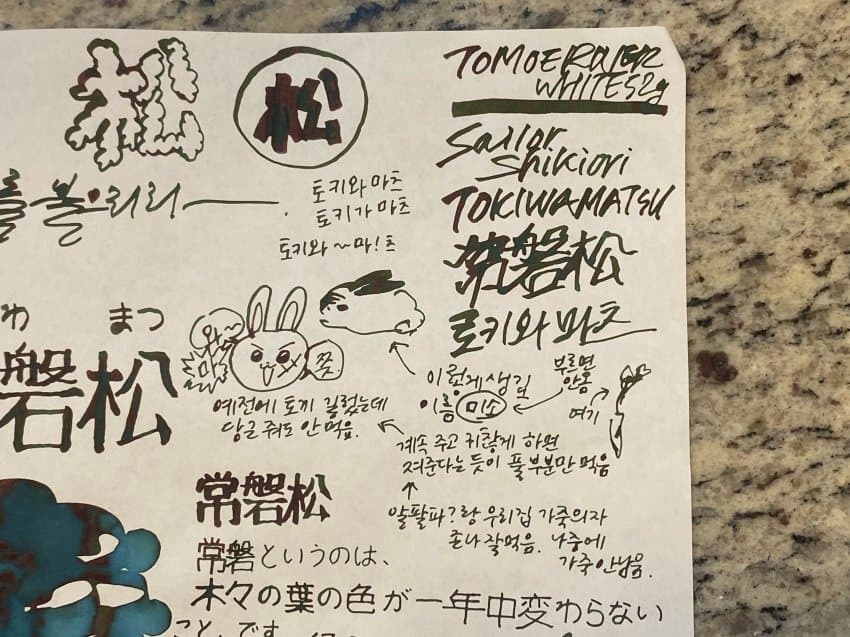 松
松
TOMOE RIVER
WHITE 52g
Sailor
Shikiori
TOKIWAMATSU
常磐松
토키와 마츠
토키와마츠
토키가마츠
토키와~마!츠
를 볼·리리
わ まつ
磐松
와~
쯧
예전에 토끼 길렀는데
당글 줘도 안 먹음.
이렇게생김
이름 미소
부르면
안옴
여기
계속 주고 귀찮게 하면
져준다는듯이 풀부분만 먹음
알팔파?랑 우리집 가죽의자
존나 잘먹음. 나중에
가죽안남음.
常磐松
常磐というのは、
木々の葉の色が一年中変わらない
こと、です